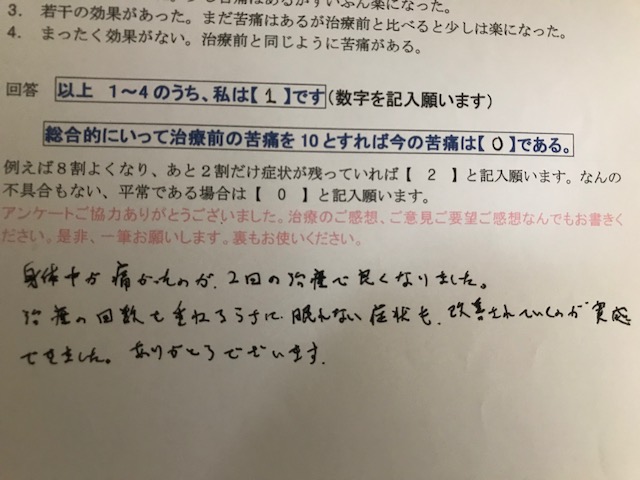 し苦痛はあるがずいぶん楽になった。
3．若干の効果があった。まだ苦痛はあるが治療前と比べると少しは楽になった。
4．まったく効果がない。治療前と同じように苦痛がある。
回答 以上 1～4のうち、私は【 1 】です(数字を記入願います)
総合的にいって治療前の苦痛を10とすれば今の苦痛は【 0 】である。
例えば８割よくなり、あと２割だけ症状が残っていれば【 2 】と記入願います。なんの
不具合もない、平常である場合は【 0 】と記入願います。
アンケートご協力ありがとうございました。治療のご感想、ご意見ご要望ご感想なんでもお書きく
ださい。是非、一筆お願いします。裏もお使いください。
身体中が痛かったのが、2回の治療で良くなりました。
治療の回数を重ねるうちに眠れない症状も、改善されていくのが実感
できました。ありがとうございます.